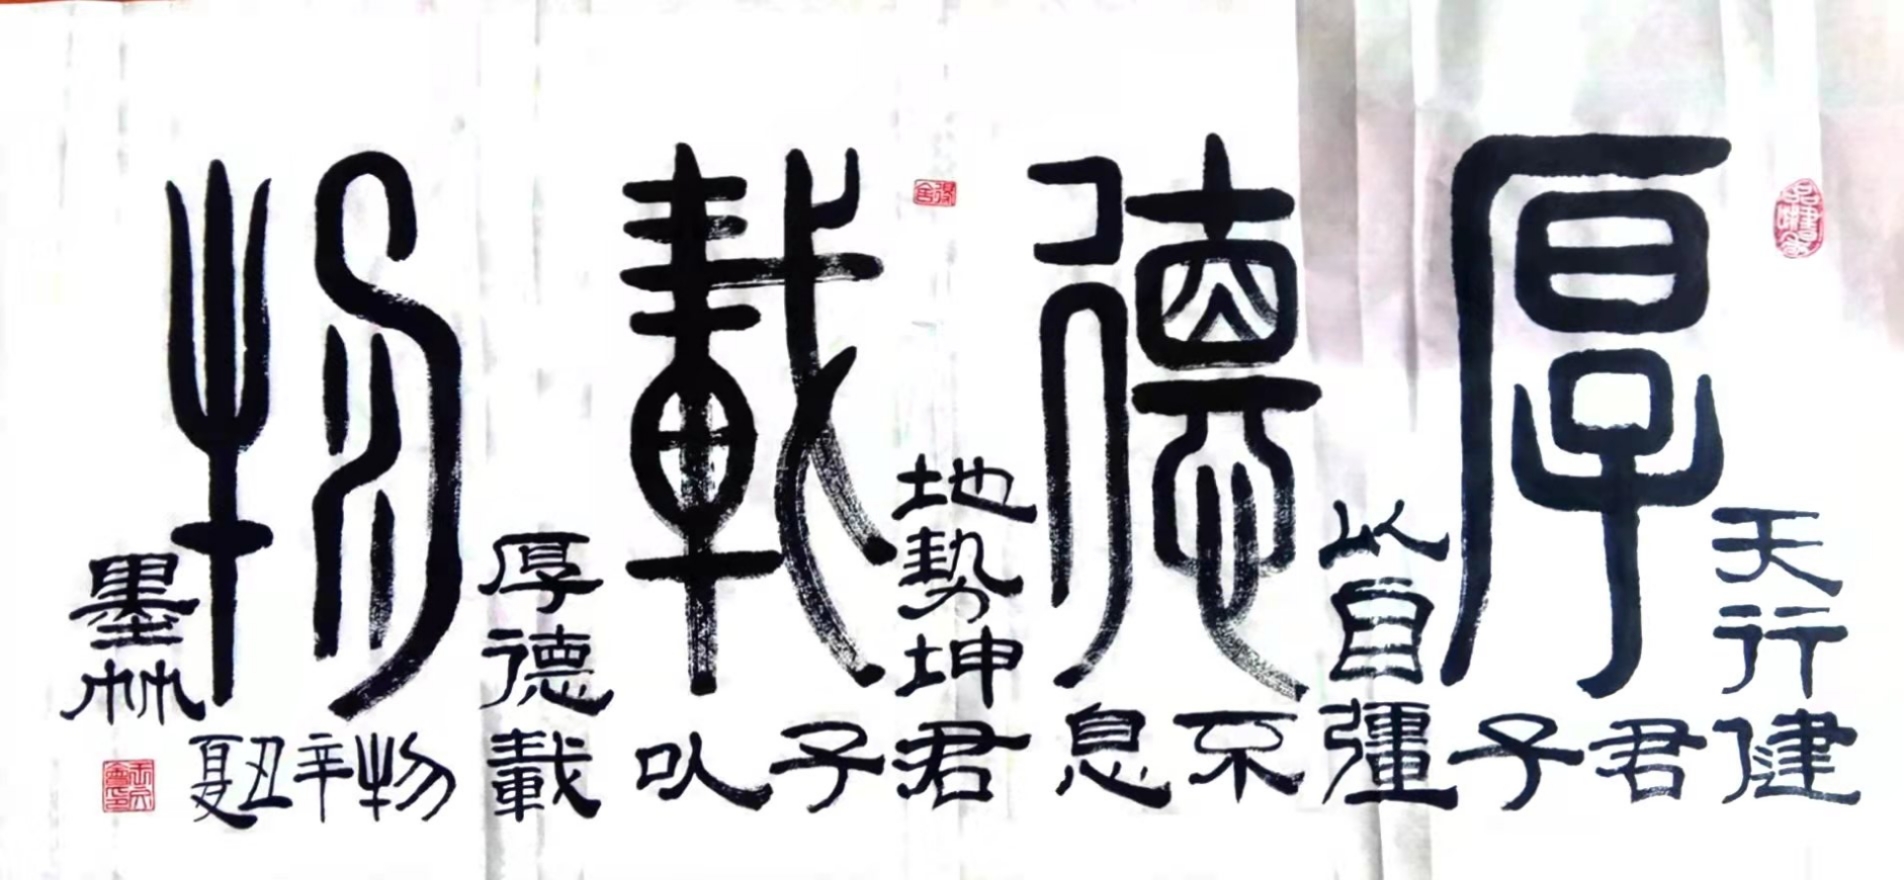 厚德載物
天行健
君
子
以自彊
不
息
地勢坤君
子
以
厚德載
物
辛
丑
夏
墨林